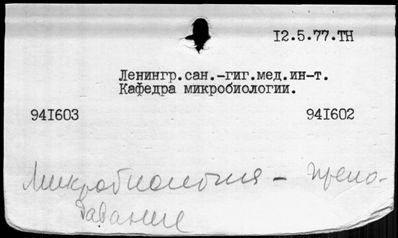 I2.5.77.ТН
Ленингр.сан.-гиг.мед.ин-т.
Кафедра микробиологии.
94I603 94I602
Микробиология - препо-
давание